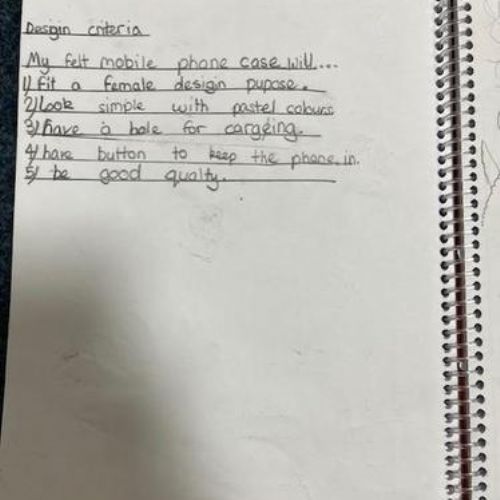 Desgin criteria
My felt mobile phone case will...
1) fit a female desigin pupose.
2) Look simple with pastel colours
3) have a hole for cargeing.
4) have button to keep the phone in.
5) be good qualty.